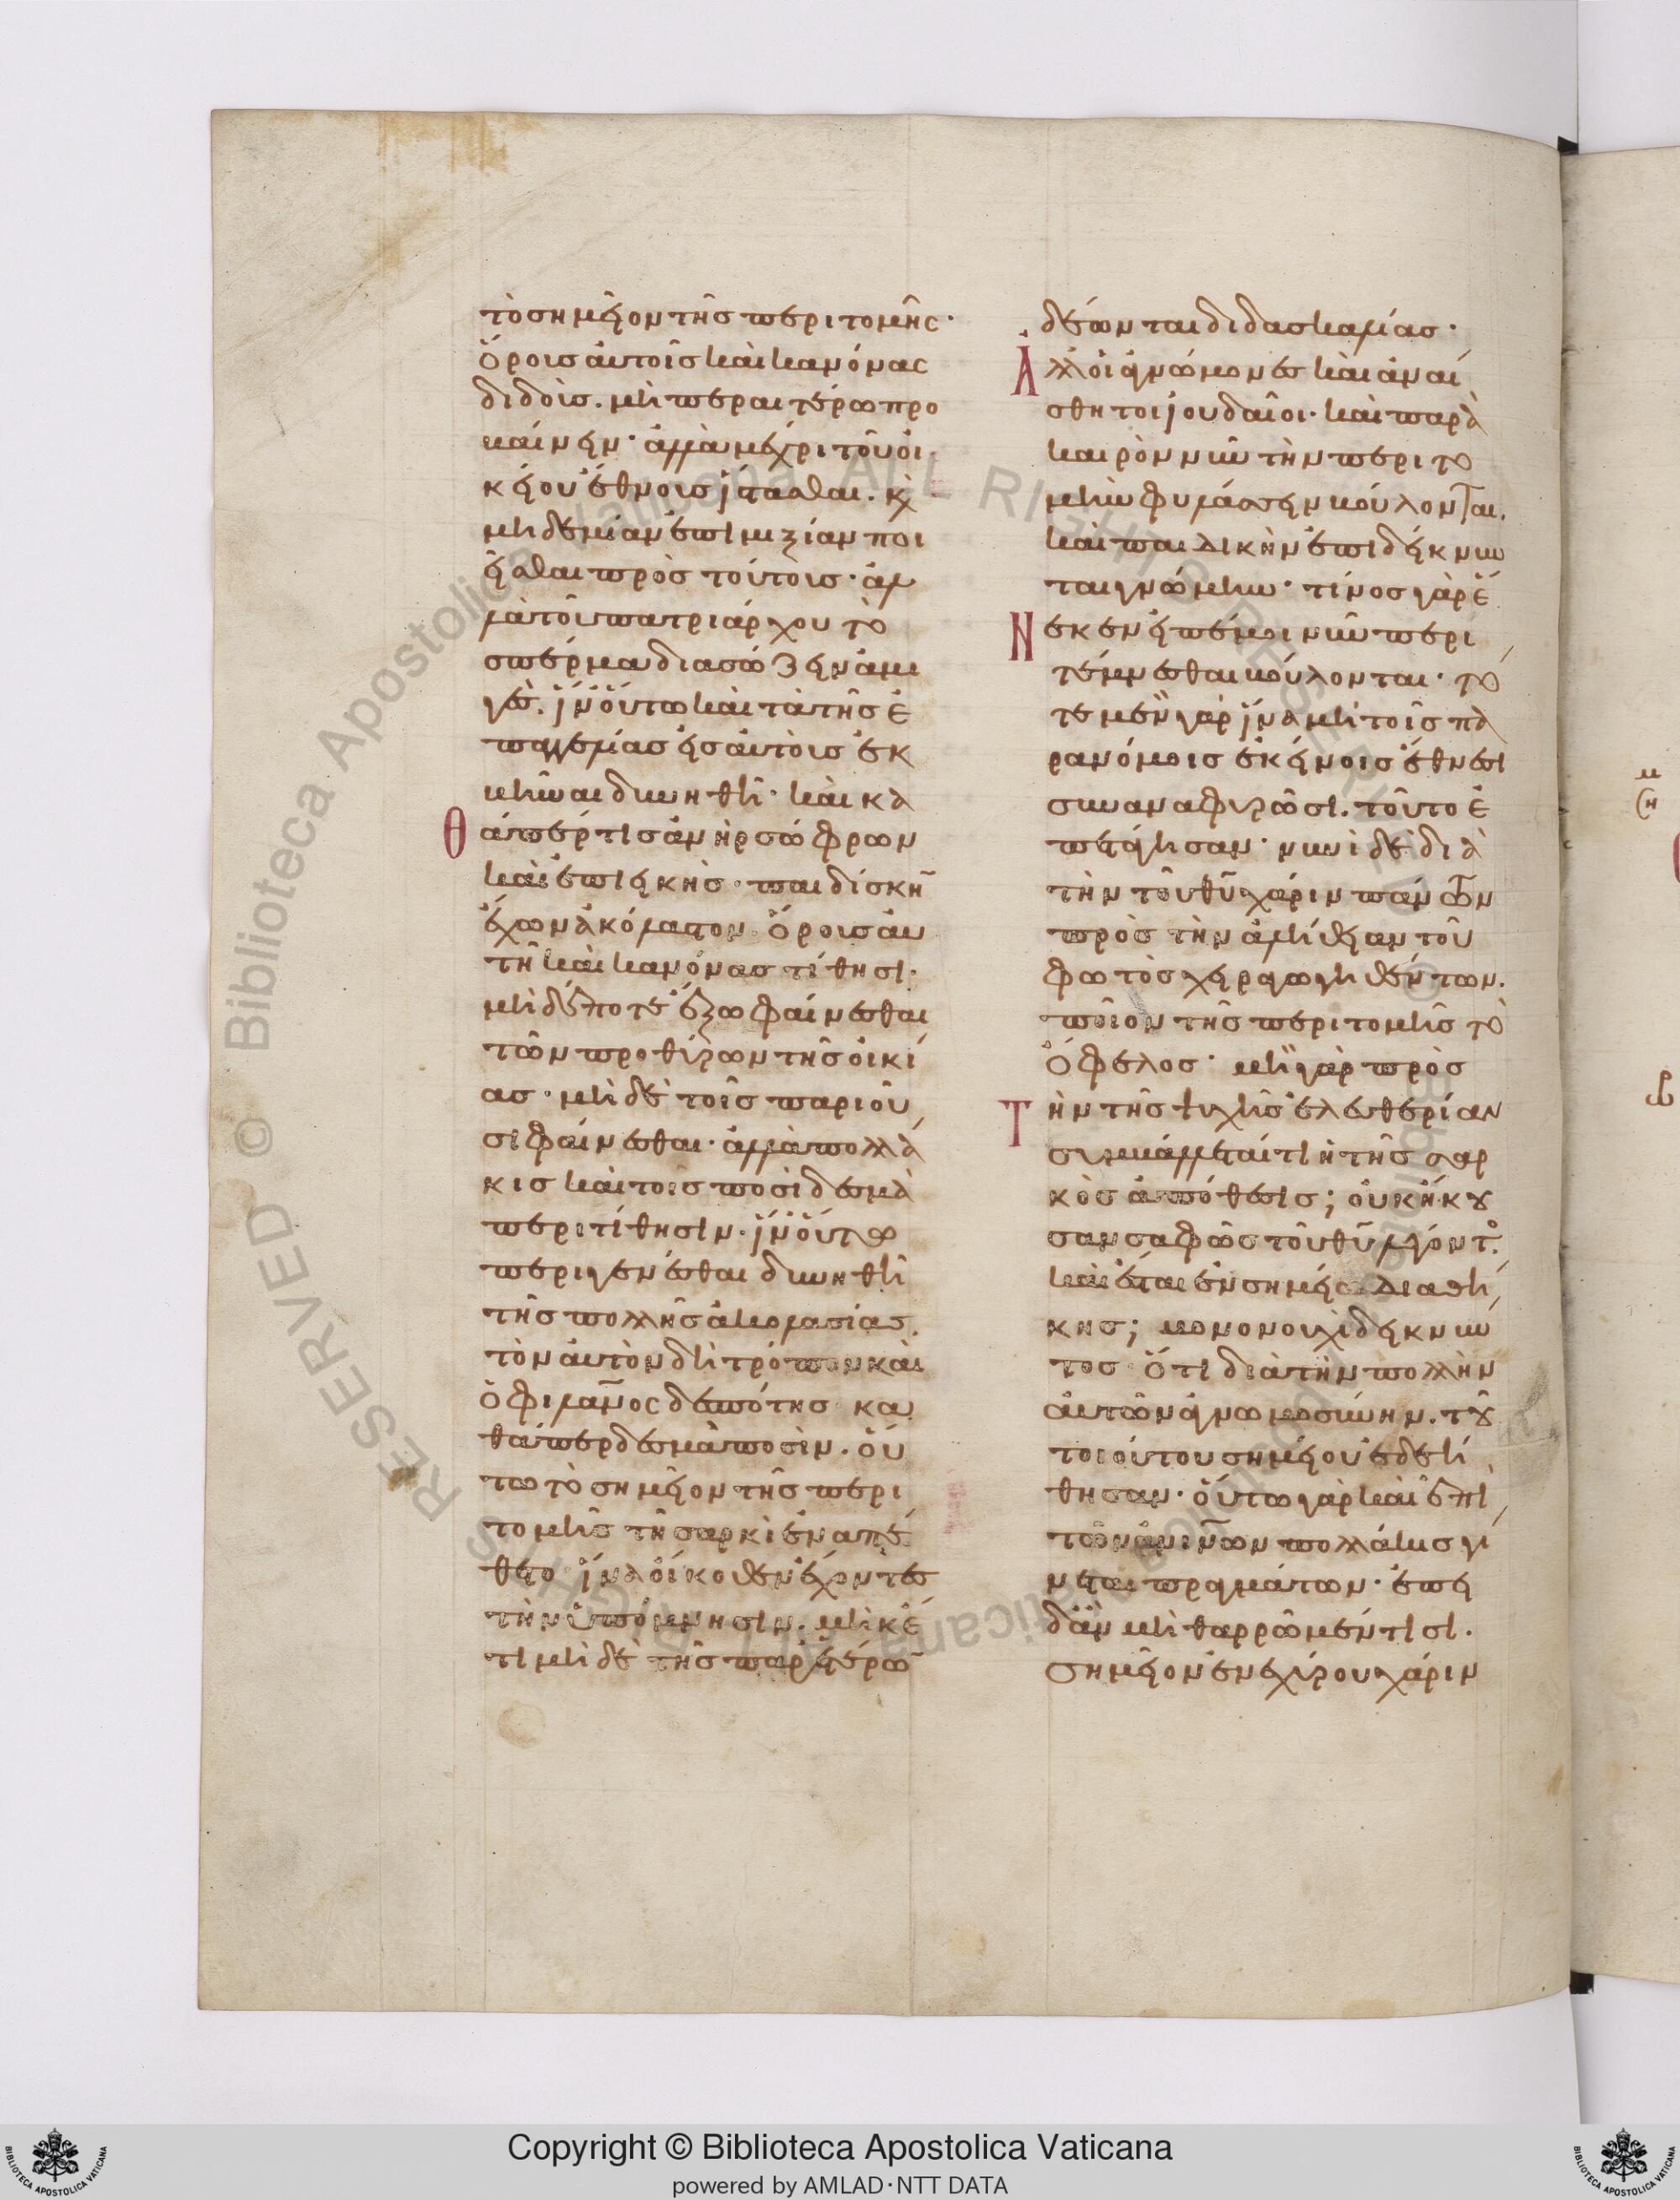 τὸ σημεῖον τῆς περιτομῆς·
ὅροις αὐτοῖς καὶ κανόνας
διδοὺς. μὴ περαιτέρω προ
βαίνειν· ἀλλὰ μέχρι τοῦ οἰ
κείου ἔθνους ἵστασθαι. κὶ
μηδεμίαν ἐπιμιξίαν ποι
εῖσθαι πρὸς τούτους· ἀλ
λὰ τοῦ πατριάρχου τὸ
σπέρμα διασώζειν ἀμι
γὲς. ἵν' οὕτω καὶ τὰ τῆς ἐ
παγγελίας εἰς αὐτοὺς ἐκ
βῆναι δυνηθῆ· καὶ κα
θάπερ τὶς ἀνὴρ σώφρων
καὶ ἐπιεικὴς· παιδίσκην
ἔχων ἀκόλαστον· ὅρους αὐ
τῆ καὶ κανόνας τίθησι·
μηδέποτε ἔξω φαίνεσθαι
τῶν προθύρων τῆς οἰκί
ας· μὴ δὲ τοῖς παριοῦ
σι φαίνεσθαι· ἀλλὰ πολλά
κις καὶ τοῖς ποσὶ δεσμὰ
περιτίθησιν· ἵν' οὕτω
περιγενέσθαι δυνηθῆ
τῆς πολλῆς ἀκολασίας.
τὸν αὐτὸν δὴ τρόπον καὶ
ὁ φιλᾱνος δεσπότης κα
θάπερ δεσμὰ ποσὶν. οὕ
τω τὸ σημεῖον τῆς περι
τομῆς τῆ σαρκὶ ἐναπέ
θετο· ἵνα οἴκοθεν ἔχοντες
τὴν ὑπόμνησιν. μὴ κέ
τι μὴ δὲ τῆς παρ' ἑτέρων
δέωνται διδασκαλίας·
Ἀλλ' οἱ ἀγνώμονες καὶ ἀναί
σθητοι ἰουδαῖοι· καὶ παρὰ
καιρὸν νῦν τὴν περιτο
μὴν φυλάσσειν βούλονται.
καὶ παιδικὴν ἐπιδείκνυν
ται γνώμην· τίνος γὰρ ἕ
Νεκεν εἰπέ μοι νῦν περι
τέμνεσθαι βούλονται· τό
τε μὲν γὰρ ἵνα μὴ τοῖς πα
ρανόμοις ἐκείνοις ἔθνεσι
συναναφυρῶσι. τοῦτο ἐ
πετάγησαν· νυνὶ δὲ διὰ
τὴν τοῦ θῦ χάριν πάντων
πρὸς τὴν ἀλήθειαν τοῦ
φωτὸς χειραγωγηθέντων.
ποῖον τῆς περιτομῆς τὸ
ὄφελος· μὴ γὰρ πρὸς
Τὴν τῆς ψυχῆς ἐλευθερίαν
συμβάλλεταί τι ἡ τῆς σαρ
κὸς ἀπόθεσις; οὐκ ἤκου
σαν σαφῶς τοῦ θῦ λέγοντος
καὶ ἔσται ἐν σημείω διαθή
κης; μονονουχὶ δεικνύν
τος ὅτι διὰ τὴν πολλὴν
αὐτῶν ἀγνωμοσύνην. τοῦ
τοιούτου σημείου ἐδεή
θησαν· οὕτω γὰρ καὶ ἐπὶ
τῶν ἀνίνων πολλάκις γί
νεται πραγμάτων· ἐπει
δὰν μὴ θαρρῶμέν τισι.
σημεῖον ἐνεχύρου χάριν